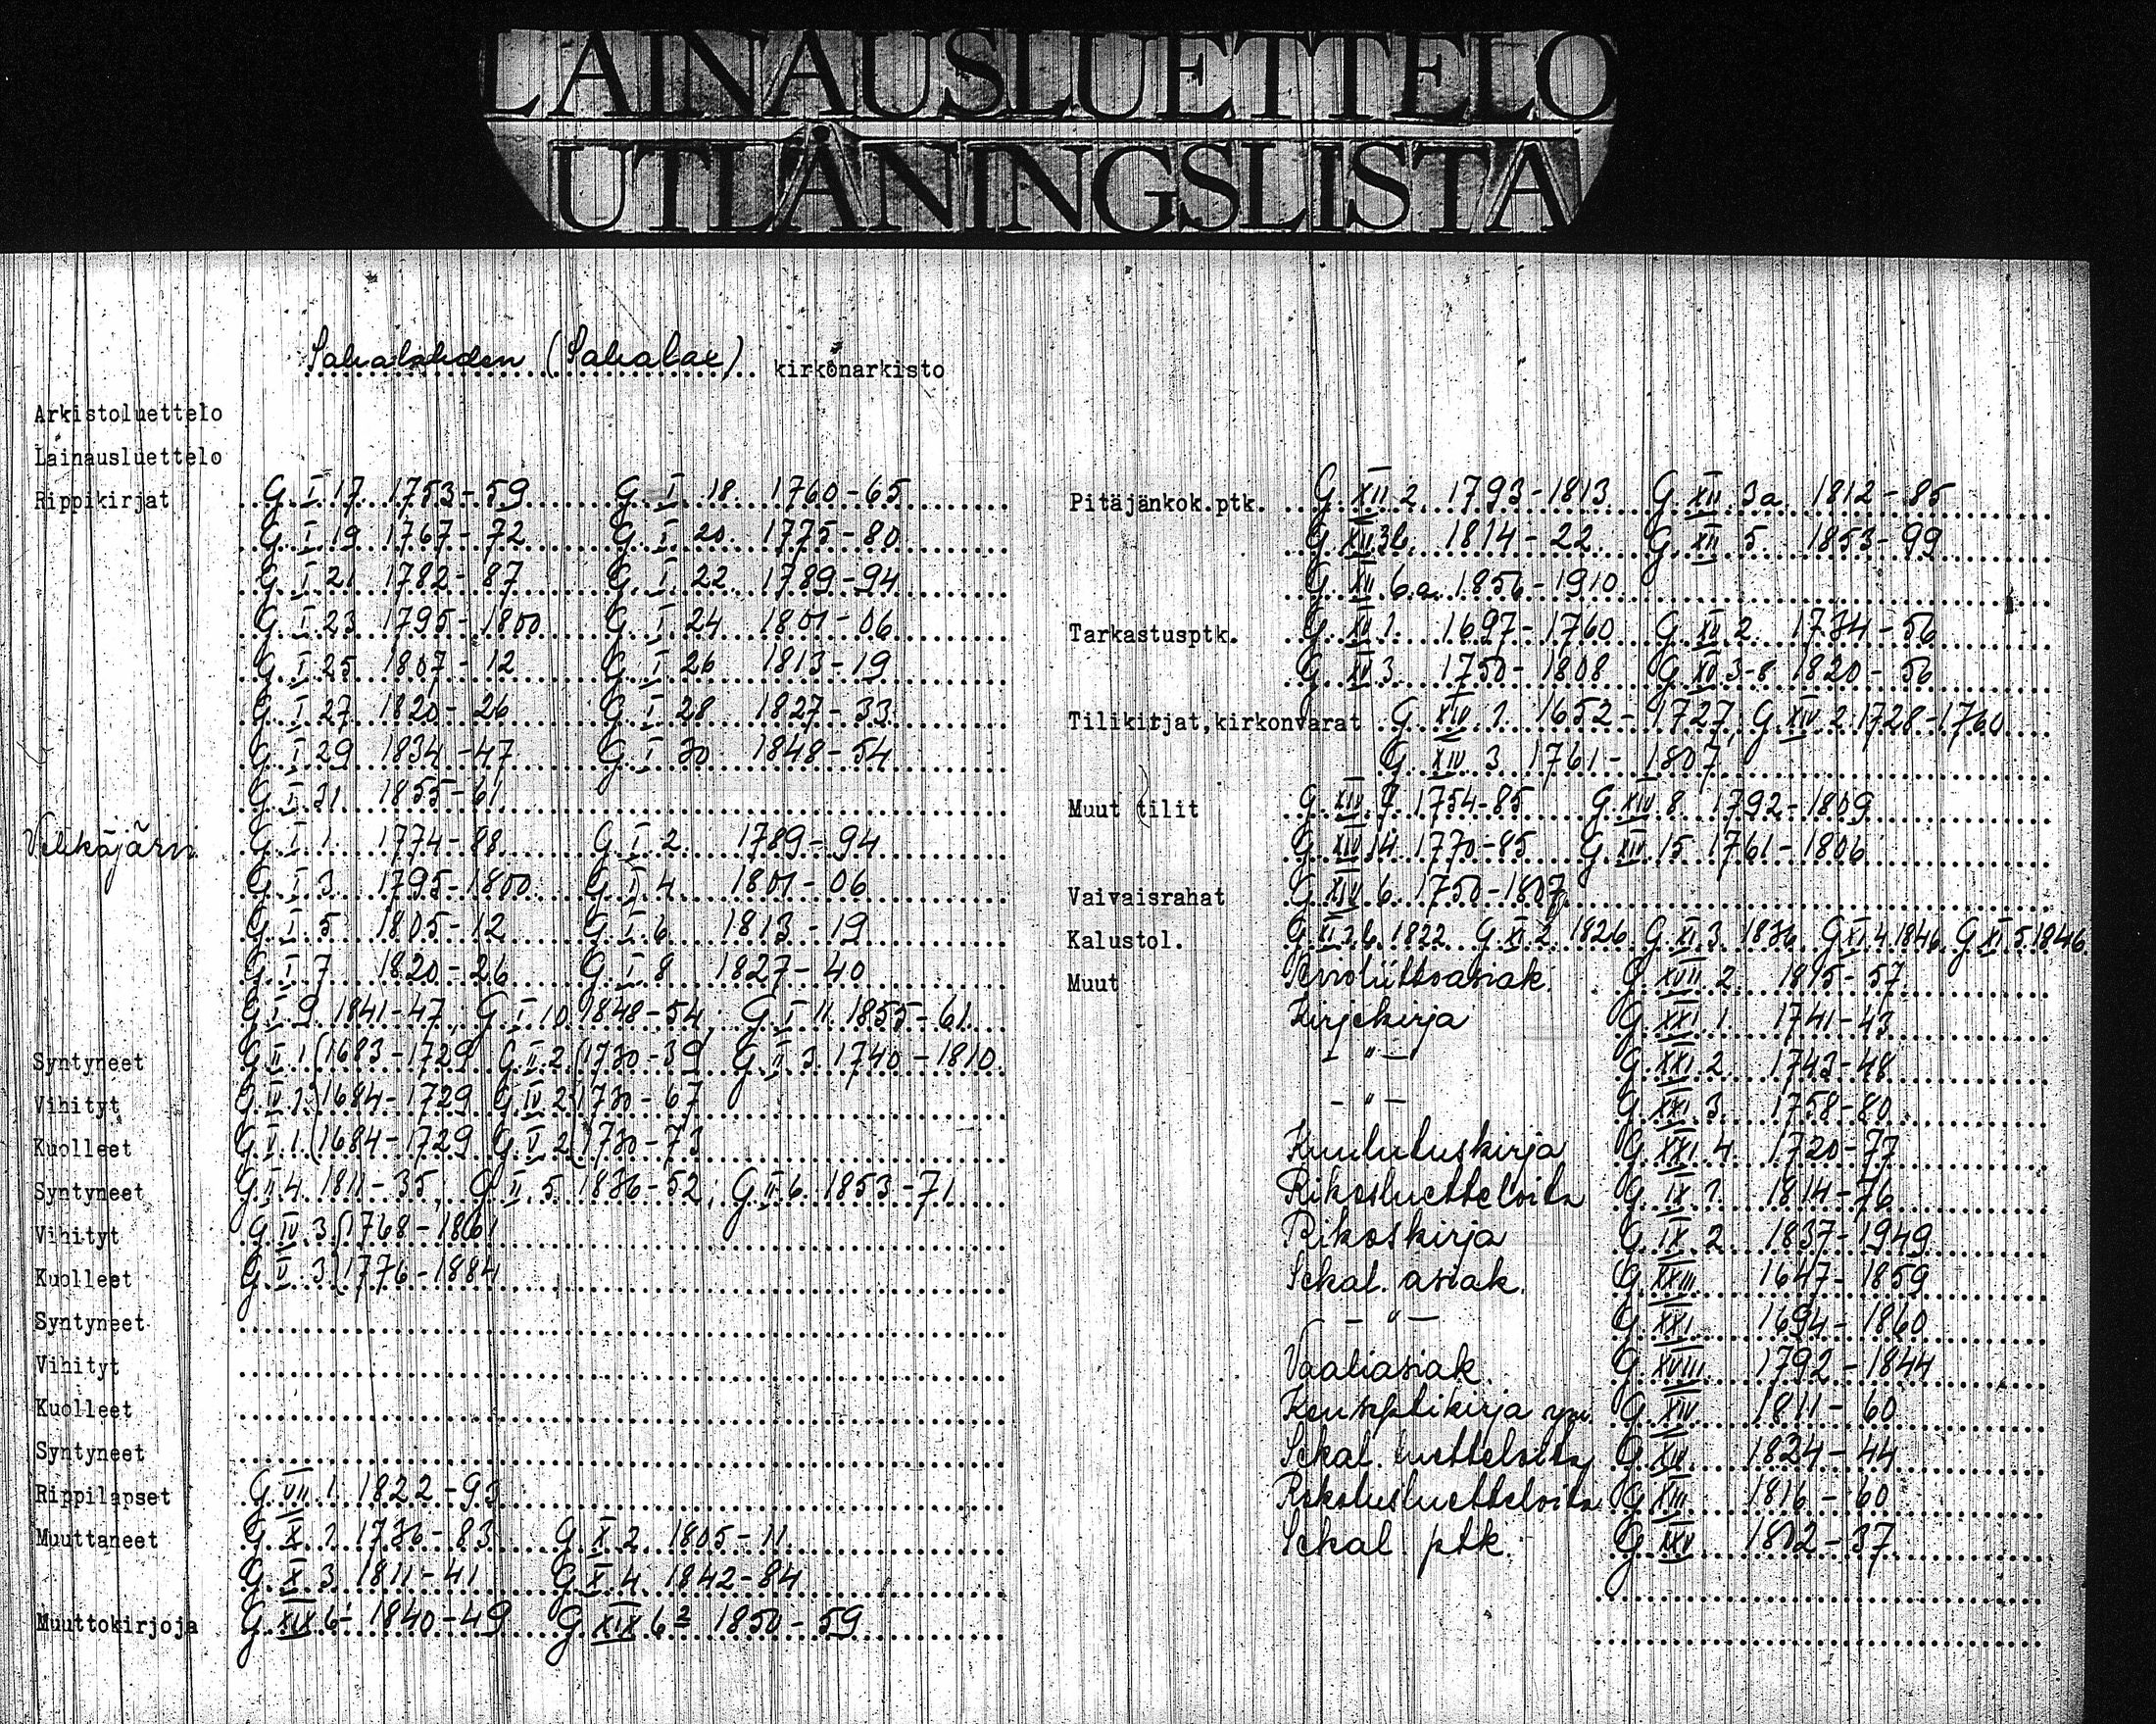 LAINAUSLUETTELO
UTLÅNINGSLISTA
Sahalahden (Sahalax) kirkonarkisto
Arkistoluettelo
Lainausluettelo
Rippikirjat G I 17 1753-59 G I 18 1760-65
G I 19 1767-72 G I 20 1775-80
G I 21 1782-87 G I 22 1789-94
G I 23 1795-1800 G I 24 1801-06
G I 25 1807-12 G I 26 1813-19
G I 27 1820-26 G I 28 1827-33
G I 29 1834-47 G I 30 1848-54
G I 31 1855-61
G I 1 1774-88 G I 2 1789-94
G I 3 1795-1800 G I 4 1801-06
G I 5 1805-12 G I 6 1813-19
G I 7 1820-26 G I 8 1827-40
G I 9 1841-47; G I 10 1848-54; G I 11 1855-61
Syntyneet G II 1 (1683-1729 G II 2 (1730-39 G II 3 1740-1810
Vihityt G IV 1 (1684-1729 G IV 2 (1730-67
Kuolleet G V 1 (1684-1729 G V 2 (1730-73
Syntyneet G II 4 1811-35; G II 5 1836-52; G II 6 1853-71
Vihityt G IV 3 (1768-1861
Kuolleet G V 3 (1776-1884
Syntyneet
Vihityt
Kuolleet
Syntyneet
Rippilapset G VII 1 1822-93
Muuttaneet G X 1 1736-83 G X 2 1805-11
G X 3 1811-41 G X 4 1842-84
Muuttokirjoja G XIX 6¹ 1840-49 G XIX 6² 1850-59
Pitäjänkok.ptk. G XII 2 1793-1813 G XII 3a 1812-85
G XII 3b 1814-22 G XII 5 1853-99
G XII 6a 1856-1910
Tarkastusptk. G XV 1 1697-1760 G XV 2 1734-56
G XV 3 1750-1808 G XV 3-8 1820-56
Tilikirjat,kirkonvarat G XIV 1 1652-1727, G XIV 2 1728-1760
G XIV 3 1761-1807
Muut tilit G XIV 7 1754-85 G XIV 8 1792-1809
G XIV 14 1770-85 G XIV 15 1761-1806
Vaivaisrahat G XIV 6 1750-1807
Kalustol. G XI 2b 1822 G XI 2 1826 G XI 3 1836 G XI 4 1846 G XI 5 1846
Muut Avioliittoasiak. G XVII 2 1815-57
Kirjekirja G XXI 1 1741-43
- " - G XXI 2 1743-48
- " - G XXI 3 1758-80
Kuulutuskirja G XXI 4 1720-77
Rikosluetteloita G IX 1 1814-76
Rikoskirja G IX 2 1837-1949
Sekal. asiak. G XXIII 1647-1859
- " - G XXI 1694-1860
Vaaliasiak. G XVIII 1792-1844
Konseptikirja ym. G XIV 1811-60
Sekal. luetteloita G XV 1824-44
Rokotusluetteloita G XIII 1816-60
Sekal. ptk. 1802-37